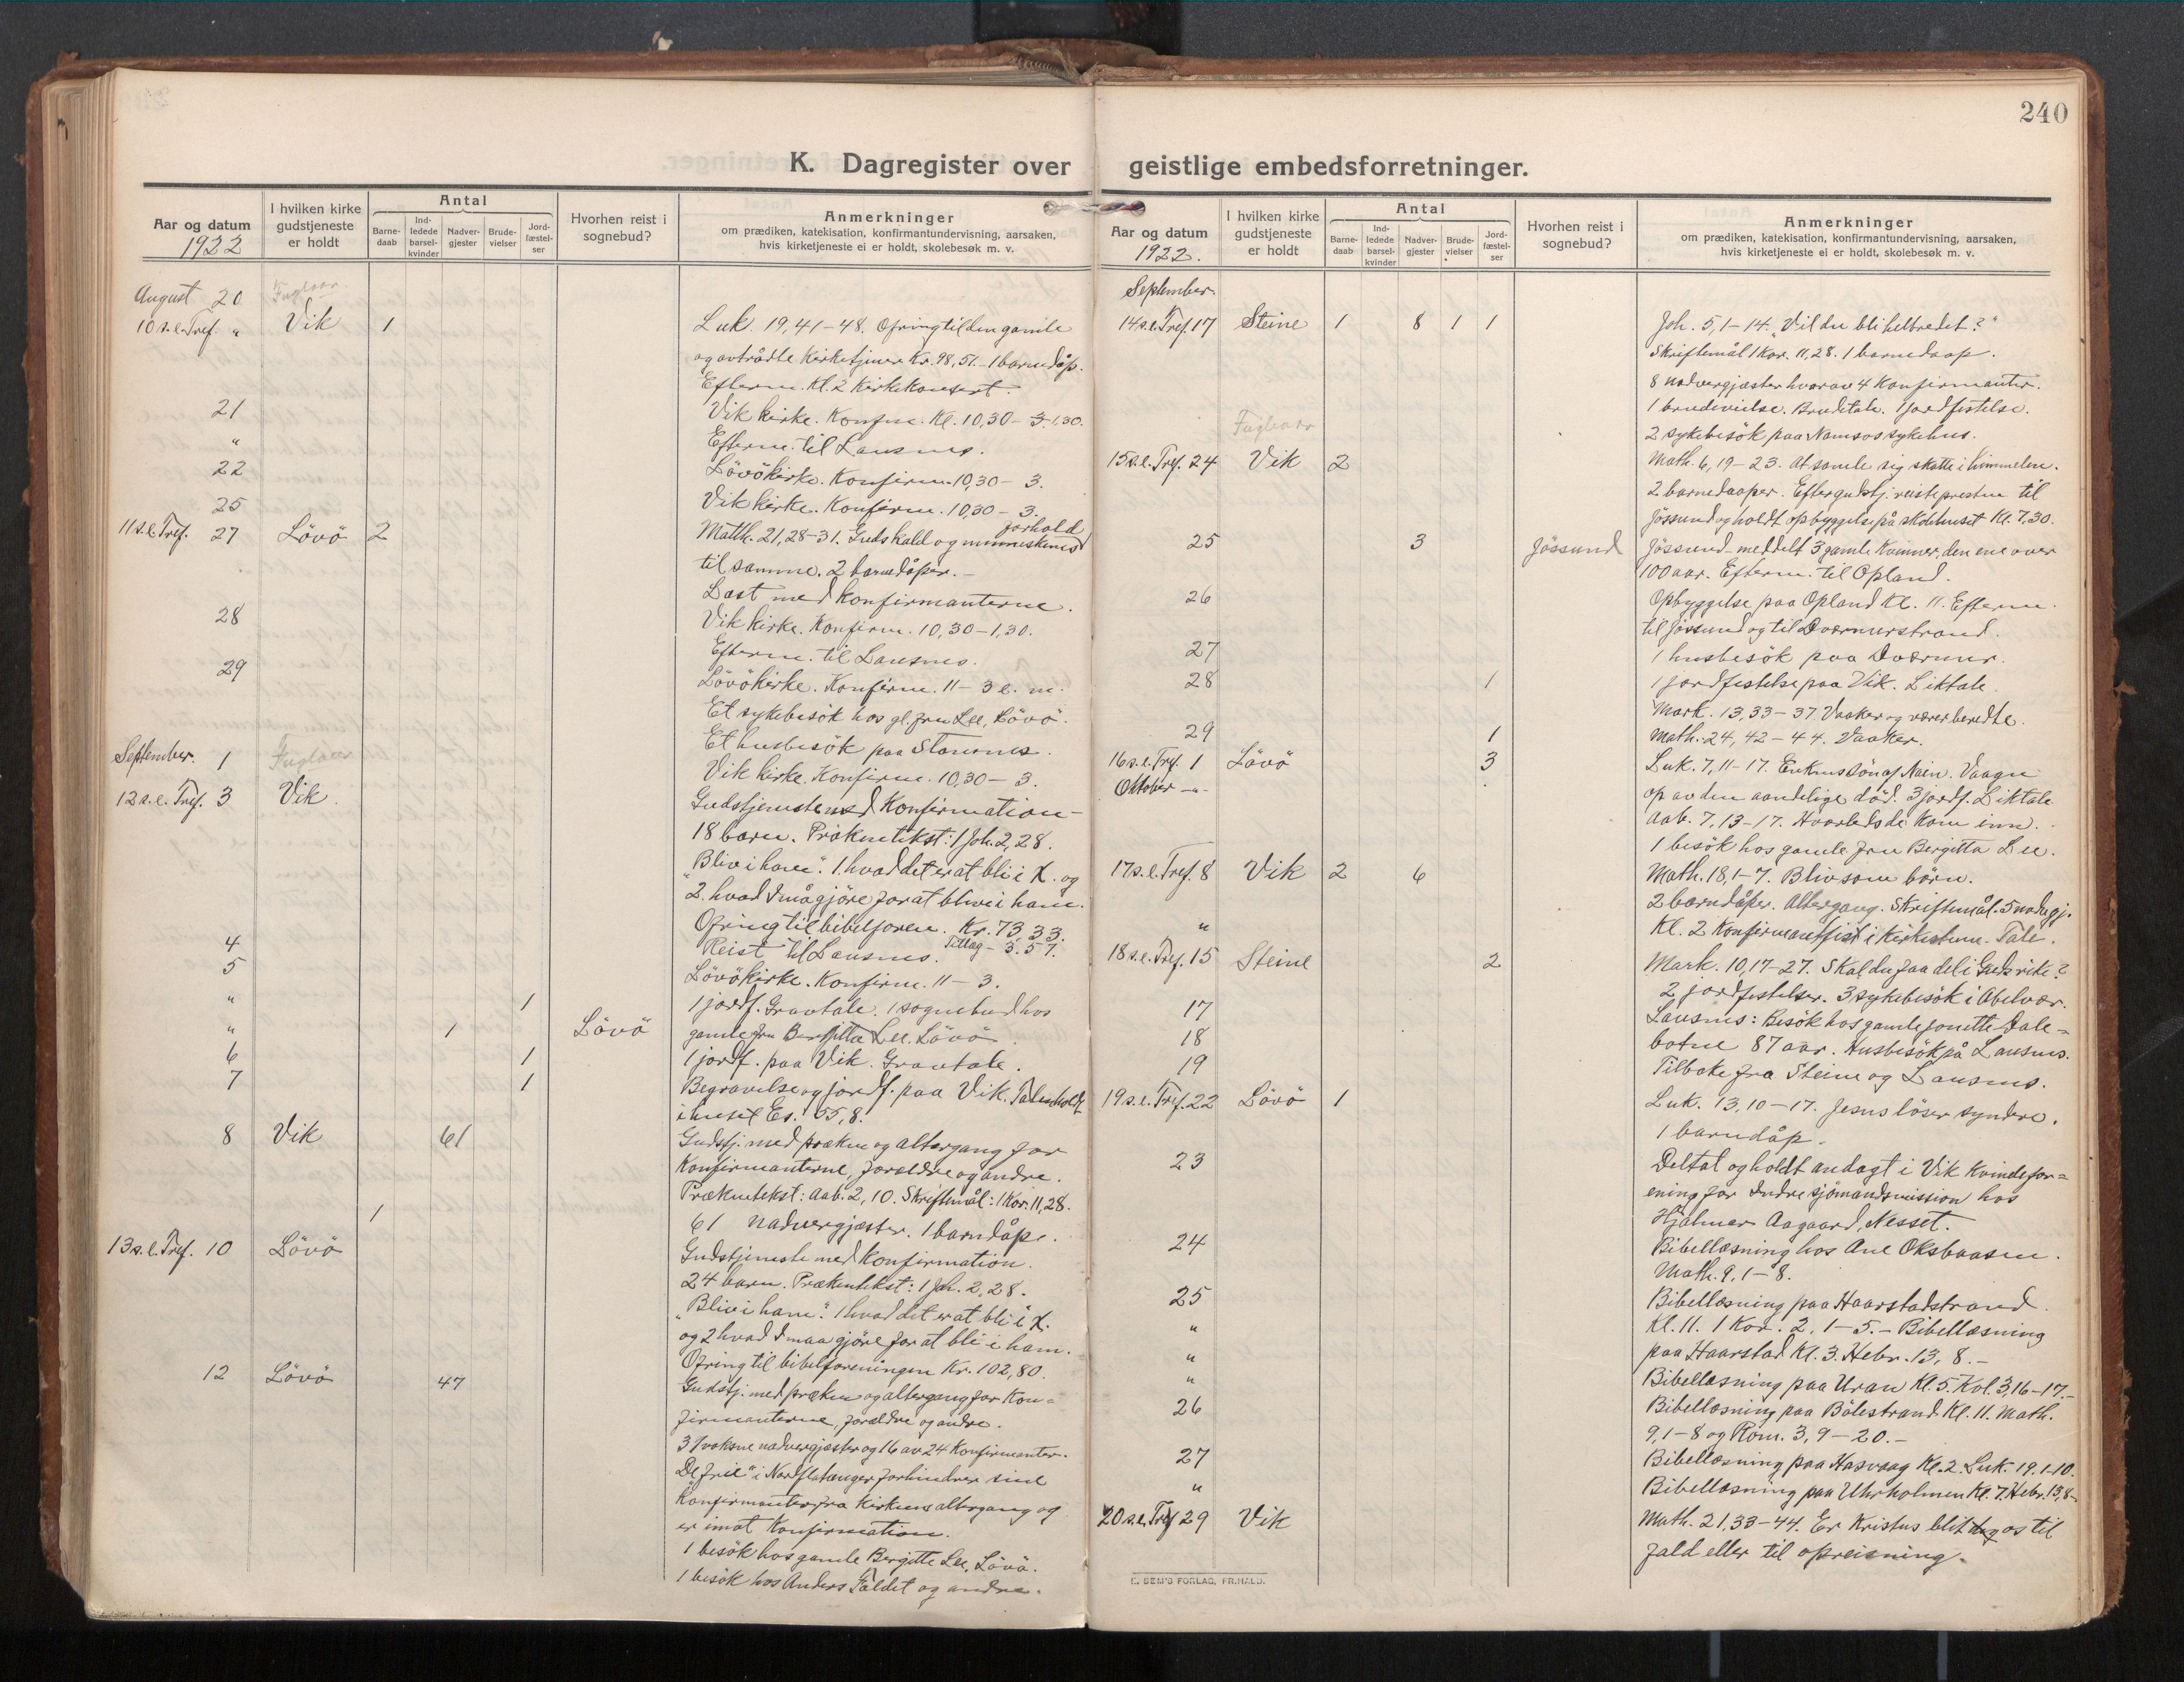 240
K. Dagregister over geistlige embedsforretninger.
Aar og datum
1922
I hvilken kirke gudstjeneste er holdt
Antal
Barne-daab
Ind-ledede barsel-kvinder
Nadver-gjester
Brude-vielser
Jord-fæstel-ser
Hvorhen reist i sognebud?
Anmerkninger
om prædiken, katekisation, konfirmantundervisning, aarsaken, hvis kirketjeneste ei er holdt, skolebesøk m. v.
August 20 Fuglaar
10 s.e.Tref. " Vik 1 Luk. 19,41-48. Ofring til den gamle
og avtrådte Kirketjener Kr. 98,51.- 1 barnedåp.
Efterm. Kl. 2 Kirkekonsert.
21 Vik kirke. Konfirm. Kl. 10,30 - 1,30.
" Efterm. til Lausnes.
22 Lövökirke. Konfirm. 10,30 - 3.
25 Vik kirke. Konfirm. 10,30 - 3.
11 s.e.Tref. 27 Lövö 2 Matth. 21,28-31. Guds kald og menneskenes forhold
til samme. 2 barnedåper.-
Læst med Konfirmanterne.
28 Vik kirke. Konfirm. 10,30-1,30.
Efterm. til Lausnes.
29 Lövökirke. Konfirm. 11 - 3 e. m.
Et sykebesök hos gl. fru Lee, Lövö.
Et husbesök paa
September. 1 Fuglaar Vik kirke. Konfirm. 10,30 - 3.
12 s.e.Tref. 3 Vik. Gudstjeneste med Konfirmation-
18 barn. Prækentekst: 1 Joh. 2,28.
"Bliv i ham". 1. hvad det er at bli i X. og
2. hvad I må gjöre for at blive i ham.
Ofring til bibelforen. Kr. 73 33.
4 Reist til Lausnes. Tillæg - 3.57.
5 Lövökirke. Konfirm. 11 - 3.
" 1 1 jordf. Gravtale. 1 sognebud hos
" 1 Lövö gamle fru Bergitta Lee. Lövö.
6 1 1 jordf. paa Vik. Gravtale.
7 1 Begravelse og jordf. paa Vik. Tale holdt
i huset Es. 55,8.
8 Vik 61 Gudstj. med præken og altergang for
Konfirmanterne, forældre og andre.
Prækentekst: Aab. 2, 10. Skriftmål: 1 Kor. 11,28.
1 61 nadvergjæster. 1 barndåp.
13 s.e.Tref. 10 Lövö Gudstjeneste med Konfirmation.
24 barn. Prækentekst: 1 Joh. 2,28.
"Bliv i ham". 1 hvad det er at bli i X.
og 2 hvad I maa gjöre for at bli i ham.
Ofring til bibelforeningen Kr. 102,80.
12 Lövö 47 Gudstj. med præken og altergang for Kon=
firmanterne, forældre og andre.
31 voksne nadvergjæster og 16 av 24 Konfirmanter.
"De frie" i Nordflatanger forhindrer sine
Konfirmanter fra Kirkens altergang og
er imot Konfirmation.
1 besök hos gamle Bergitte Lee, Lövö.
1 besök hos Anders Faldet og andre.
Aar og datum
1922.
I hvilken kirke gudstjeneste er holdt
Antal
Barne-daab
Ind-ledede barsel-kvinder
Nadver-gjester
Brude-vielser
Jord-fæstel-ser
Hvorhen reist i sognebud?
Anmerkninger
om prædiken, katekisation, konfirmantundervisning, aarsaken, hvis kirketjeneste ei er holdt, skolebesøk m. v.
September.
14 s.e.Tref. 17 Steine 1 8 1 1 Joh. 5,1-14. "Vil du bli helbredet?"
Skriftemål 1 Kor. 11,28. 1 barnedaap.
8 nadvergjæster hvorav 4 Konfirmanter.
1 brudevielse. Brudetale. 1 jordfestelse.
Fuglaar 2 sykebesök paa Namsos sykehus.
15 s.e.Tref. 24 Vik 2 Math. 6,19-23. At samle sig skatte i himmelen.
2 barnedaaper. Efter gudstj. reiste presten til
Jössund og holdt opbyggelse på skolehuset Kl. 7,30.
25 3 Jössund Jössund - meddelt 3 gamle Kvinner, den ene over
100 aar. Efterm. til Opland.
26 Opbyggelse paa Opland Kl. 11. Efterm.
til Jössund og til Dværnerstrand.
27 1 husbesök paa
28 1 1 jordfestelse paa Vik. Liktale.
Mark. 13,33-37 Vaaker og værer beredte.
29 1 Math. 24, 42-44. Vaaker.
16 s.e.Tref. 1 Lövö 3 Luk. 7,11-17. Enkens sön af Nain. Vaagn
Oktober -"- op av den aandelige död. 3 jordf. Liktale
Aab. 7,13-17. Hvorledes de kom inn.
1 besök hos gamle fru Bergitta Lee.
17 s.e.Tref. 8 Vik 2 6 Math. 18,1-7. Bliv som börn.
2 barndåper. Altergang. Skriftmål. 5 nadvgj.
" Kl. 2 Konfirmantfist i Kirkestuen. Tale.
18 s.e.Tref. 15 Steine 2 Mark. 10,17-27. Skal du faa del i Guds rike?
2 jordfestelser. 3 sykebesök i Abelvær.
17 Lausnes: Besök hos gamle Jonette Dale=
18 botne 87 aar. Husbesök på Lausnes.
19 Tilbake fra Steine og Lausnes.
19 s.e.Tref. 22 Lövö 1 Luk. 13,10-17. Jesus löser syndere.
1 barndåp.
23 Deltat og holdt andagt i Vik Kvindefor=
ening for Indre sjömandsmission hos
Hjalmar Aagaard, Nesset.
24 Bibellæsning hos Ane Oksbaasen.
Math. 9,1-8.
25 Bibellæsning paa Haarstadstrand.
" Kl. 11. 1 Kor. 2, 1-5.- Bibellæsning
" paa Haarstad Kl. 3. Hebr. 13, 8.-
" Bibellæsning paa Uran Kl. 5. Kol. 3,16-17.-
26 Bibellæsning paa Bölestrand Kl. 11. Math.
9,1-8 og Rom. 3, 9-20.-
27 Bibellæsning paa Hasvaag Kl. 2. Luk. 19.1-10.
" Bibellæsning paa Uhrholmen Kl. 7. Hebr. 13,8-
20 s.e.Tref 29 Vik Math. 21,33-44. Er Kristus blit os til
fald eller til opreisning.
E. SEM'S FORLAG, FR.HALD.